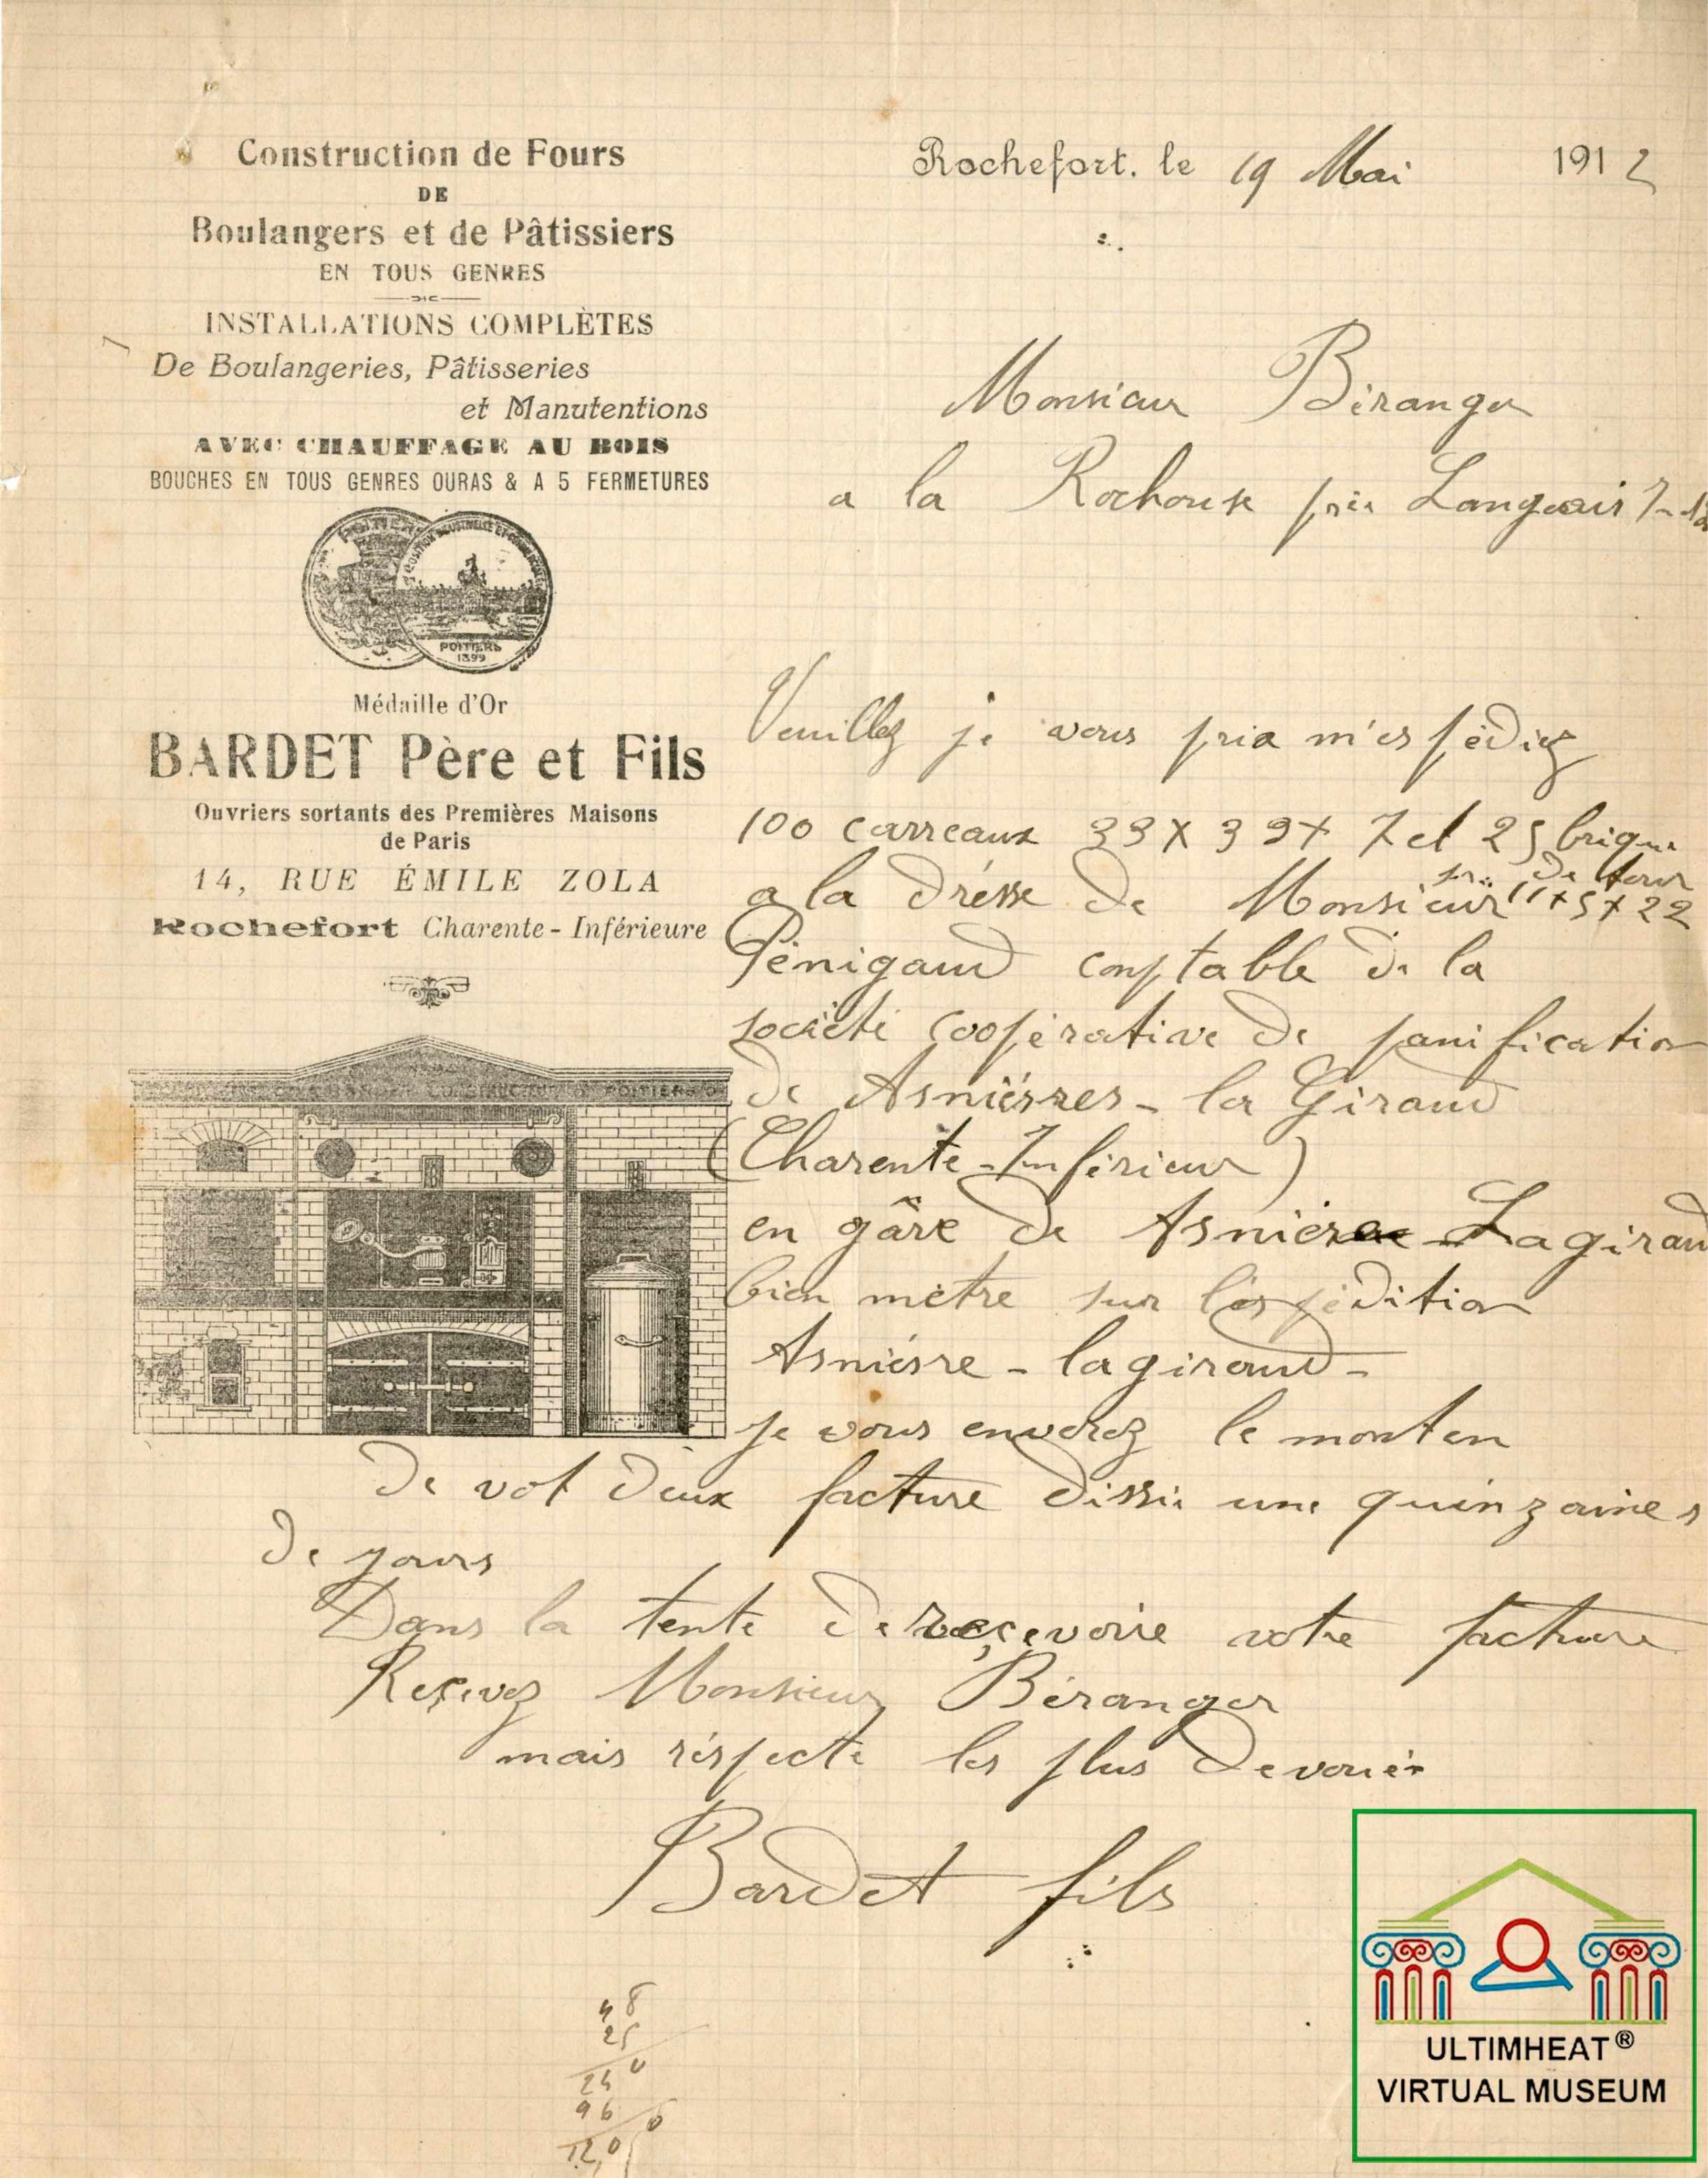 Construction de Fours
DE
Boulangers et de Pâtissiers
EN TOUS GENRES
INSTALLATIONS COMPLÈTES
De Boulangeries, Pâtisseries
et Manutentions
AVEC CHAUFFAGE AU BOIS
BOUCHES EN TOUS GENRES OURAS & A 5 FERMETURES
POITIERS
1899
Médaille d'Or
BARDET Père et Fils
Ouvriers sortants des Premières Maisons
de Paris
14, RUE ÉMILE ZOLA
Rochefort Charente-Inférieure
CONSTRUCTEUR POITIERS
Rochefort. le 19 Mai 1912
Monsieur Béranger
a la Rochouse près Langeais
Veuillez je vous pria m'espédiez
100 carreaux 33 X 33 + 7 et 25 brique
de four
a la drésse de Monsieur 11 + 5 + 22
Pénigaud comptable de la
société coopérative de panification
de Asniésres - la Giraud
(Charente-Inférieur)
en gâre de Asnière - Lagiraud
bien mètre sur l'éspédition
Asniésre - lagiraud -
je vous enverez le monten
de vot deux facture dissi une quinzaines
de jours
Dans la tente de reçevoire votre facture
Reçevez Monsieur Béranger
mais réspecte les plus devouér
Bardet fils
48
25
240
96
ULTIMHEAT®
VIRTUAL MUSEUM